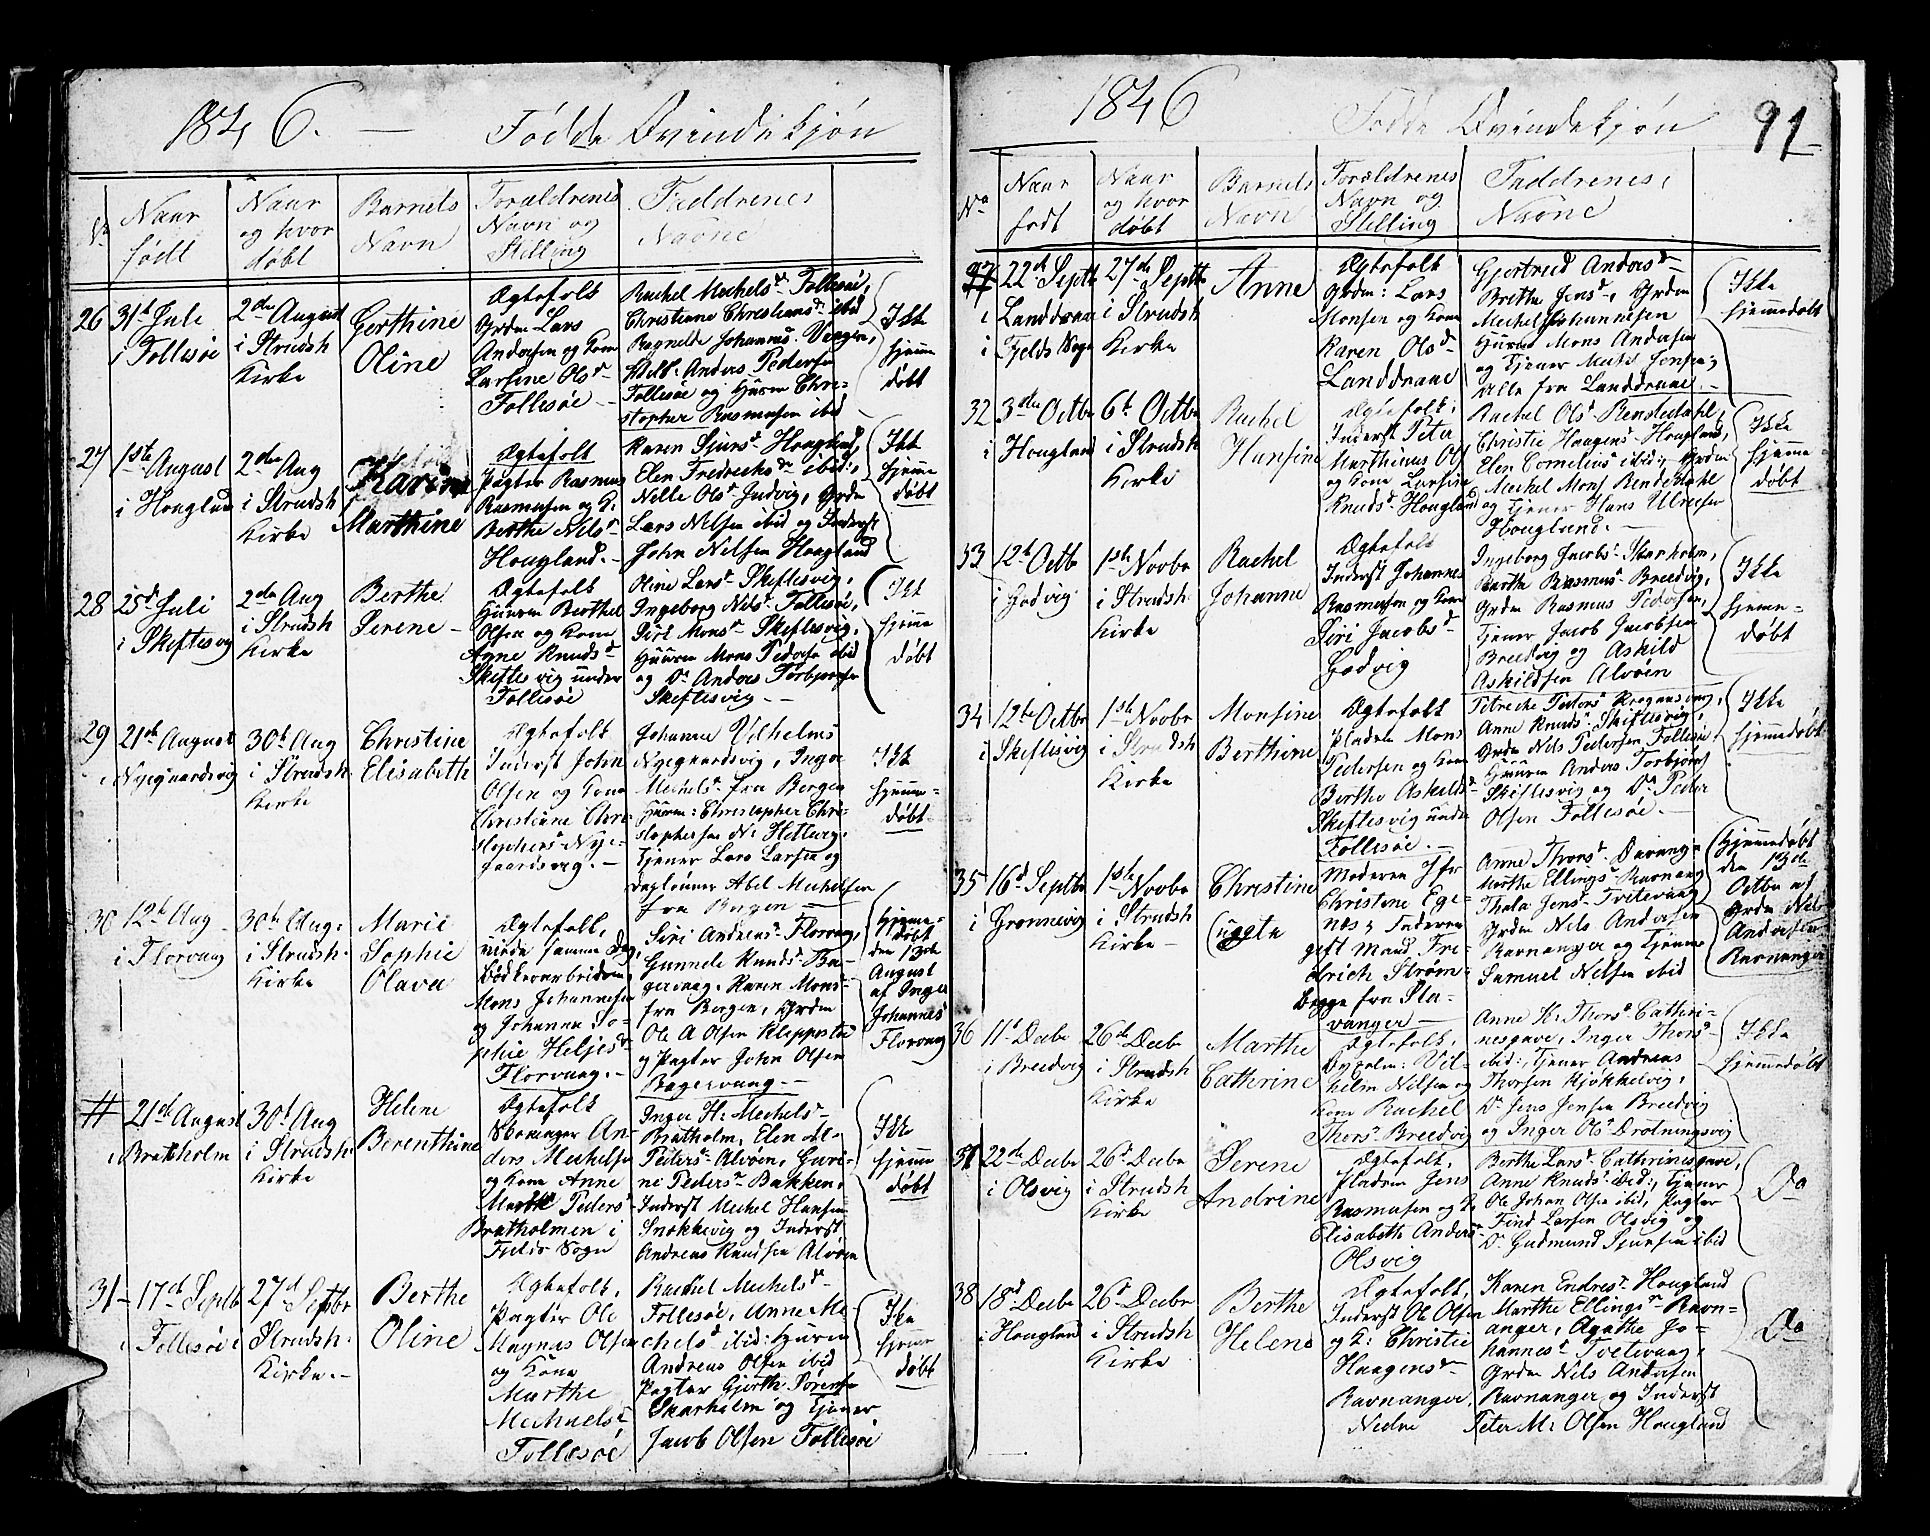 1846. — Fødde Qvindekjøn
No
Naar
født
Naar
og hvor
døbt
Barnets
Navn
Forældrenes
Navn og
Stilling
Faddrenes
Navne
26
31te Juli
i Follesøe
2den August
i Strudsh
Kirke
Gerthine
Oline
Ægtefolk
Grdm Lars
Andersen og Kone
Larsine Olsd
Follesøe
Rachel Mechelsdr Follesøe,
Christiane Christiansd ibid
Ragnilde Johannesd Vaagen,
Anders Pedersen
Follesøe og Huusm Chri-
stopher Rasmussen ibid
Ikke
hjemme
døbt
27
1ste August
i Hougland
2den Aug
i Strudsh
Kirke
Karine
Marthine
Ægtefolk
Pagter Rasmus
Rasmussen og K.
Berthe Nilsdr
Hougland.
Karen Sjursd Hougland,
Elen Fredriksdr ibid:,
Nille Olsd Indvig, Grdm
Lars Nilsen ibid og Inderst
John Nilsen Hougland
Ikke
hjemme
døbt
28
25d Juli
i Skiftesvig
2den Aug
i Strudsh
Kirke
Berthe
Serene
Ægtefolk
Huusm Berthel
Olsen og Kone
Anne Knudsd
Skiftesvig under
Follesøe
Oline Larsd Skiftesvig,
Ingeborg Nilsd Follesøe,
Siri Monsd Skiftesvig,
Huusm Mons Pedersen ibid
og Do Anders Torbjørnsen
Skiftesvig
Ikke
hjemme
døbt
29
21de August
i Nygaardsvig
30te Aug
i Strudsh
Kirke
Christine
Elisabeth
Ægtefolk
Inderst John
Olsen og Kone
Christiane Chri-
stophersd Nye-
gaardsvig.
Johanne Vilhelmsd
Nyegaardsvig, Inger
Mechelsd fra Bergen
Huusm: Christopher Chri-
stophersen N: Hetlevig.
Tjener Lars Larsen og
Daglønner Abel Mechelsen
fra Bergen
Ikke
hjemme-
døbt
30
12te Aug
i Florvaag
30te Aug.
i Strudsh.
Kirke
Marie
Sophie
Olava
Ægtefolk,
viede samme Dag,
Bødkerarbeider
Mons Johannesen
og Johanna So-
phie Heljesd
Florvaag.
Siri Andreasd Florvaag,
Gunnele Knudsd Ba-
gervaag, Karen Monsd
fra Bergen, Grdm
Ole A Olsen Kleppestø
og Pagter John Olsen
Bagervaag
Hjemme-
døbt
den 13de
August
af Inger
Johannesd
Florvaag
#
21de August
i Bratholm
30te Aug
i Strudsh.
Kirke
Helene
Berenthine
Ægtefolk
An-
ders Mechelsen
og Kone Anne
Marthe Pedersd
Bratholmen i
Fjelds Sogn
Inger H: Mechelsd
Bratholm, Elen Ol-
Pedersd Alvøen, Guri-
ne Pedersd Bakken,
Inderst Mechel Hansen
Snekkevig og Inderst
Andreas Knudsen Alvøen
Ikke
hjemme
døbt
31
17de Septbr
i Follesøe
27d Septbr
i Strudsh.
Kirke.
Berthe
Oline
Ægtefolk,
Pagter Ole
Magnus Olsen
og Kone
Marthe
Mechaelsd
Follesøe
Rachel Mechelsdr
Follesøe, Anne Me-
chelsd ibid: Huusm
Andreas Olsen ibid
Pagter Gjerth Sørensen
Skarholm og Tjener
Jacob Olsen Follesøe
Ikke
hjemme
døbt
1846 Fødte Qvindekjøn 91
No
Naar
født
Naar
og hvor
døbt
Barnets
Navn
Forældrenes
Navn og
Stilling
Faddrenes
Navne
#
22de Septbr
i Landdraae
i Fjelds Sogn
27de Septbr
i Strudsh
Kirke
Anne
Ægtefolk
Grdm: Lars
Monsen og Kone
Karen Olsd
Landdraae
Gjertrud Andersd
Brethe Jensd, Grdm
Mechel Johannesen
Huusm Mons Andersen
og Tjener Mechel Jensen,
Alle fra Landdraae.
Ikke
hjemmedøbt
32
3den Octbr
i Hougland
6te Octbr
i Strudsh
Kirke
Rachel
Hansine
Ægtefolk,
Inderst Peter
Marthinus Ols
og Kone Larsine
Knudsd Hougland
Rachel Olsd Bensledahl,
Christie Haagensd Hougland,
Elen Corneliusd ibid:, Grdm
Mechel Monsen Bensledahl
og Tjener Hans Ulrichsen
Hougland.
Ikke
hjemme-
døbt
33
12te Octbr
i Godvig
1ste Novbr
i Strudsh
Kirke
Rachel
Johanne
Ægtefolk
Inderst Johannes
Rasmussen og Kone
Siri Jacobsd
Godvig
Ingeborg Jacobsd Skarholm,
Berthe Rasmusd Breedvig,
Grdm Rasmus Pedersen,
Tjener Jacob Jacobsen
Breedvig og Askild
Askildsen Alvøen
Ikke
hjemme-
døbt
34
12te Octbr
i Skiftesvig
1ste Novbr
i Strudsh
Kirke
Monsine
Berthine
Ægtefolk
Pladsm Mons
Pedersen og Kone
Berthe Askildsd
Skiftesvig under
Follesøe.
Anne Knudsd Skiftesvig,
Grdm Nils Pedersen Follesøe
Huusm Anders Torbjørns
Skiftesvig og Do Peder
Olsen Follesøe.
Ikke
hjemmedøbt
35
16d Septbr
i Grønnevig
1ste Novbr
i Strudsh
Kirke
Christine
(uægte
Moderen Jfr
Christine Ege-
næs; Faderen
gift Mand Fre-
drich Strøm-
Begge fra Sta-
vanger
Anne Thorsd Davang-
Marthe Ellingsd Ravnang
Thala Jensd Tvetevaag
Grdm Nils Andersen
Ravnanger og Tjener
Samuel Nilsen ibid
Hjemmedøbt
den 13de
Octbr af
Grdm Nils
Andersen
Ravnanger
36
11te Decbr
i Breedvig
26de Decbr
i Strudsh
Kirke
Marthe
Cathrine
Ægtefolk,
Vil-
helm Nilsen og
Kone Rachel
Thorsd Breedvig
Anne K: Thorsd Cathri-
nesgave, Inger Thorsd
ibid:, Tjener Andreas
Thorsen Kjøkkelvig,
Do Jens Jensen Breedvig
og Inger Olsd Drotningsvig
Ikke
hjemmedøbt
37
22de Decbr
i Olsvig
26d Decbr
i Strudsh
Kirke
Serene
Andrine
Ægtefolk,
Pladsm Jens
Rasmussen og K.
Elisabeth Andersd
Olsvig
Berthe Larsd Cathrinesgave,
Anne Knudsd ibid:, Tjener
Ole Johan Olsen ibid, Pagter
Find Larsen Olsvig og
Do Gudmund Sjursen ibid
Do
38
18d Decbr
i Hougland
26d Decbr
i Strudsh
Kirke
Berthe
Helene
Ægtefolk,
Inderst Ole Olsen
og K: Christie
Haagensdr
Ravnanger
Nedre
Karen Endresd Hougland
Marthe Ellingsdr Ravn-
anger, Agathe Jo-
hannesd Tvetevaag,
Grdm Nils Andersen
Ravnanger og Inderst
Peter M: Olsen Hougland
Do